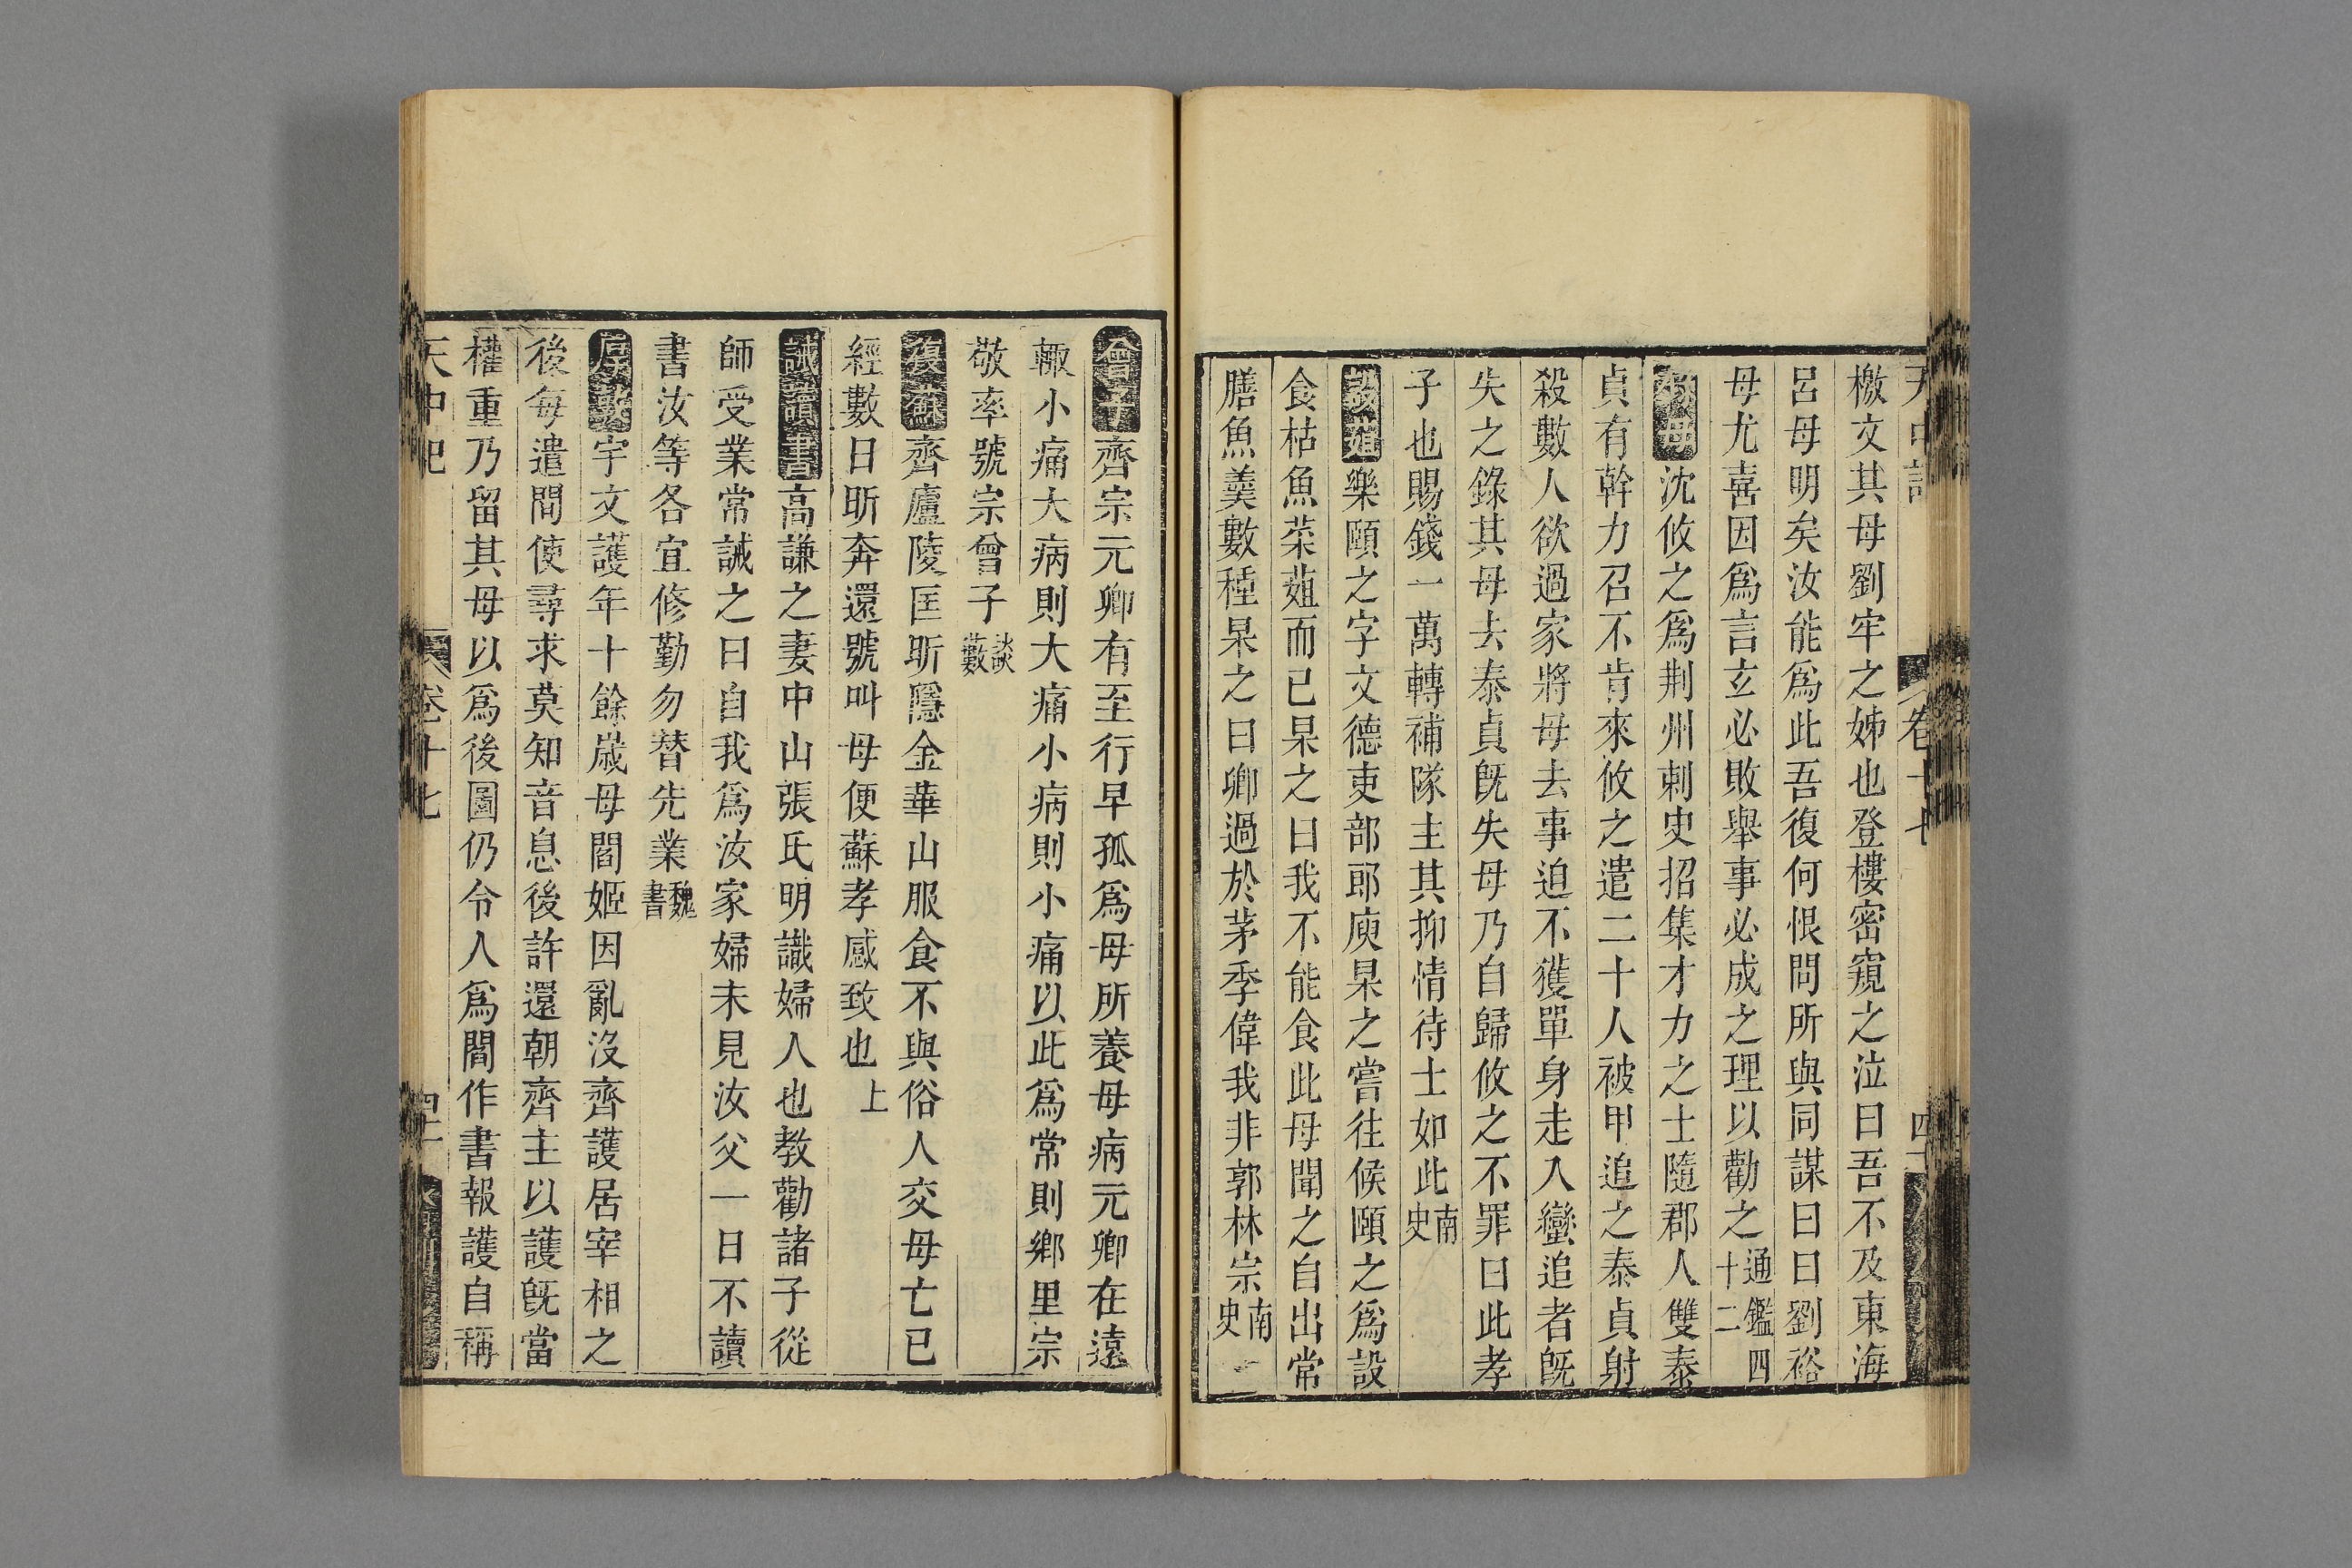 檄文其母劉牢之姊也登樓密窺之泣曰吾不及東海
呂母明矣汝能爲此吾復何恨問所與同謀曰曰劉裕
母尤喜因爲言玄必敗舉事必成之理以勸之通鑑四十二
母沈攸之爲荆州刺史招集才力之士隨郡人雙泰
貞有幹力召不肯來攸之遣二十人被甲追之泰貞射
殺數人欲過家將母去事迫不獲單身走入蠻追者旣
失之錄其母去泰貞旣失母乃自歸攸之不罪曰此孝
子也賜錢一萬轉補隊主其抑情待士如此南史
設葅樂頤之字文德吏部郎庾杲之嘗往候頤之爲設
食枯魚菜葅而已杲之曰我不能食此母聞之自出常
膳魚羹數種杲之曰卿過於茅季偉我非郭林宗南史
曾子齊宗元卿有至行早孤爲母所養母病元卿在遠
輒小痛大病則大痛小病則小痛以此爲常則鄉里宗
敬率號宗曾子談藪
復蘇齊廬陵匡昕隱金華山服食不與俗人交母亡已
經數日昕奔還號叫母便蘇孝感致也上
誡讀書高謙之妻中山張氏明識婦人也教勸諸子從
師受業常誡之曰自我爲汝家婦未見汝父一日不讀
書汝等各宜修勤勿替先業魏書
宇文護年十餘歲母閻姬因亂沒齊護居宰相之
後每遣間使尋求莫知音息後許還朝齊主以護旣當
權重乃留其母以爲後圖仍令人爲閻作書報護自稱
天中記 卷十七